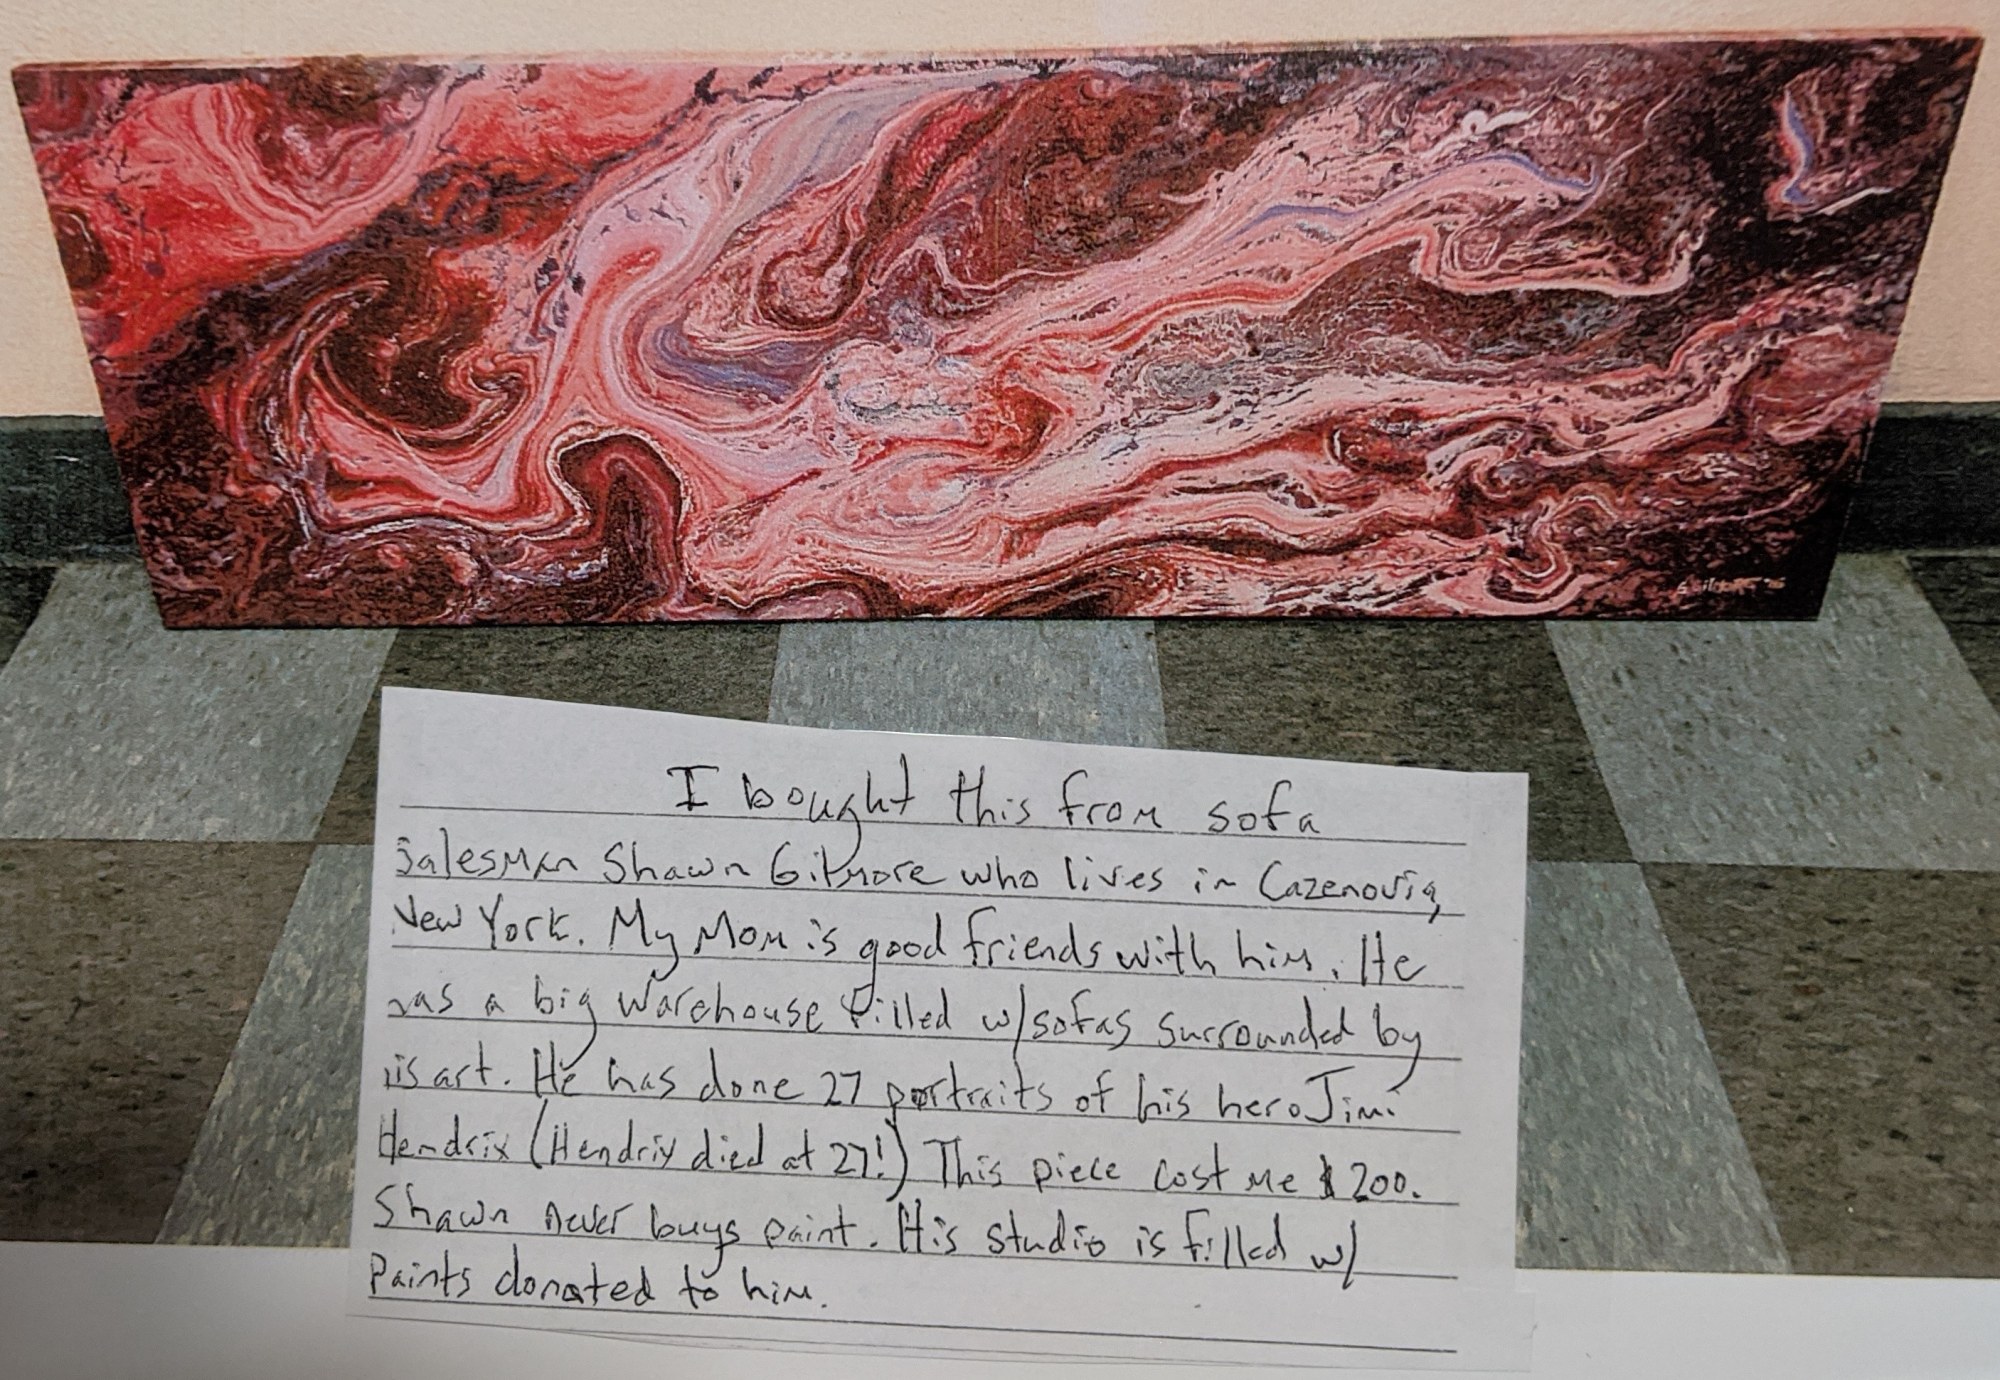 I bought this from sofa
salesman Shawn Gilmore who lives in Cazenovia,
New York. My Mom is good friends with him. He
has a big warehouse filled w/sofas surrounded by
his art. He has done 27 portraits of his hero Jimi
Hendrix (Hendrix died at 27!) This piece cost me $200.
Shawn never buys paint. His studio is filled w/
Paints donated to him.